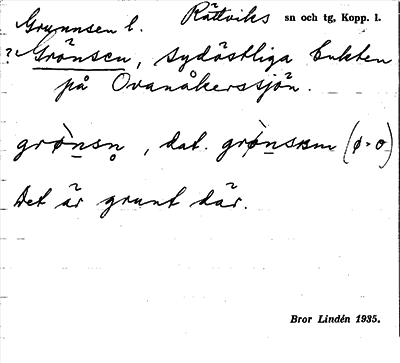 Grunnsen l. Rättviks sn och tg, Kopp. l.
? Grönsen, sydöstliga bukten
på Ovanåkerssjön.
grø̀nsn̥, dat. grø̀nsnm (ø-o)
Det är grunt där.
Bror Lindén 1935.